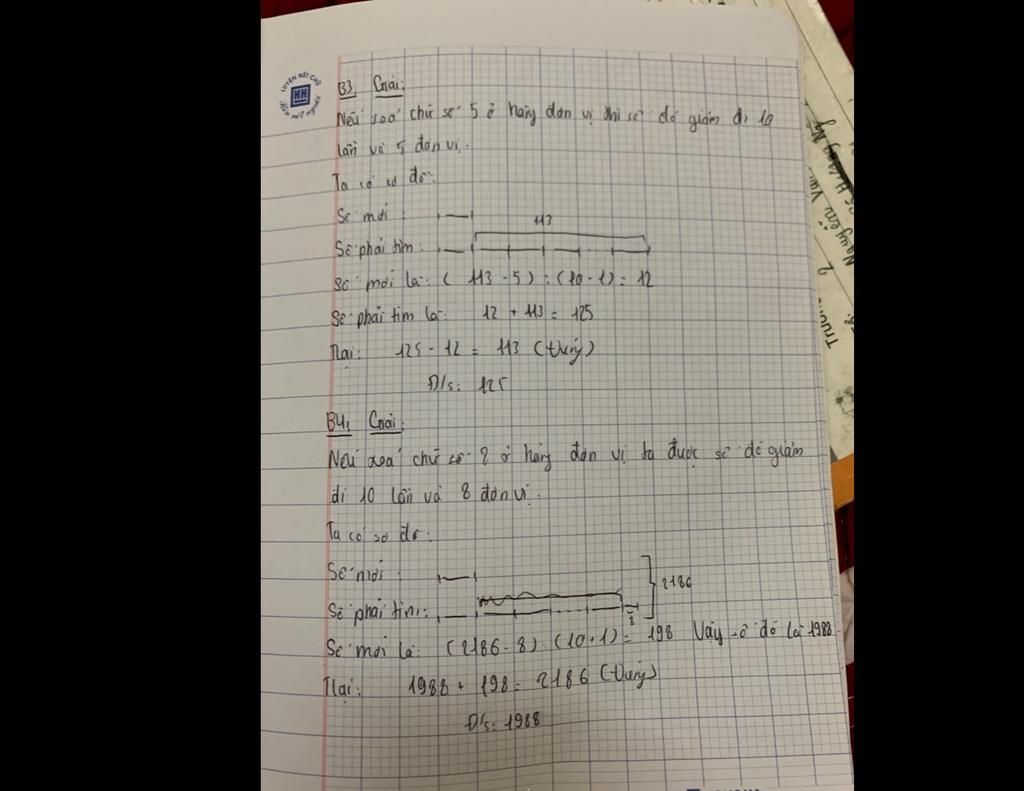 B3, Giải:
Nếu xoá chữ số 5 ở hàng đơn vị thì số đó giảm đi 10
lần và 5 đơn vị.
Ta có sơ đồ:
Số mới :
113
Số phải tìm:
Số mới là: ( 113 - 5) : (10 - 1) = 12
Số phải tìm là: 12 + 113 = 125
Tlại: 125 - 12 = 113 (đúng)
Đ/s: 125
B4, Giải:
Nếu xoá chữ số 8 ở hàng đơn vị ta được số đó giảm
đi 10 lần và 8 đơn vị.
Ta có sơ đồ:
Số mới :
2186
Số phải tìm:
8
Số mới là: (2186 - 8) : (10 + 1) = 198 Vậy số đó là 1988
Tlại: 1988 + 198 = 2186 (đúng)
Đ/s: 1988
LUYỆN NÉT CHỮ
HH
Nguyễn Văn
2